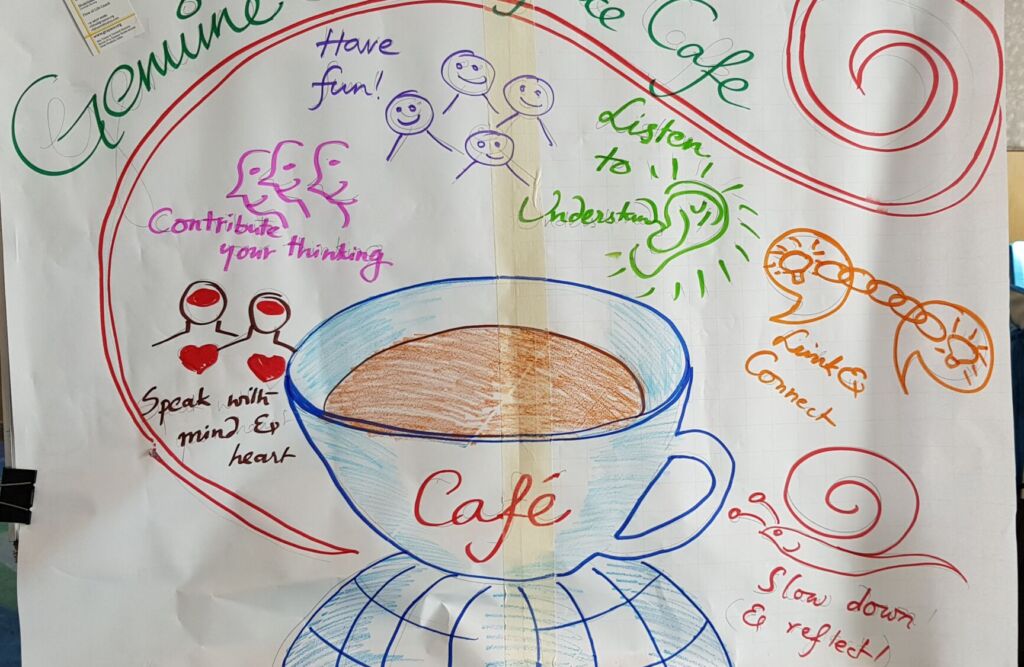 Genuine
Cafe
Have
fun!
Listen
to
Understand
Contribute
your thinking
Link &
Connect
Speak with
mind &
heart
Café
Slow down
& reflect!